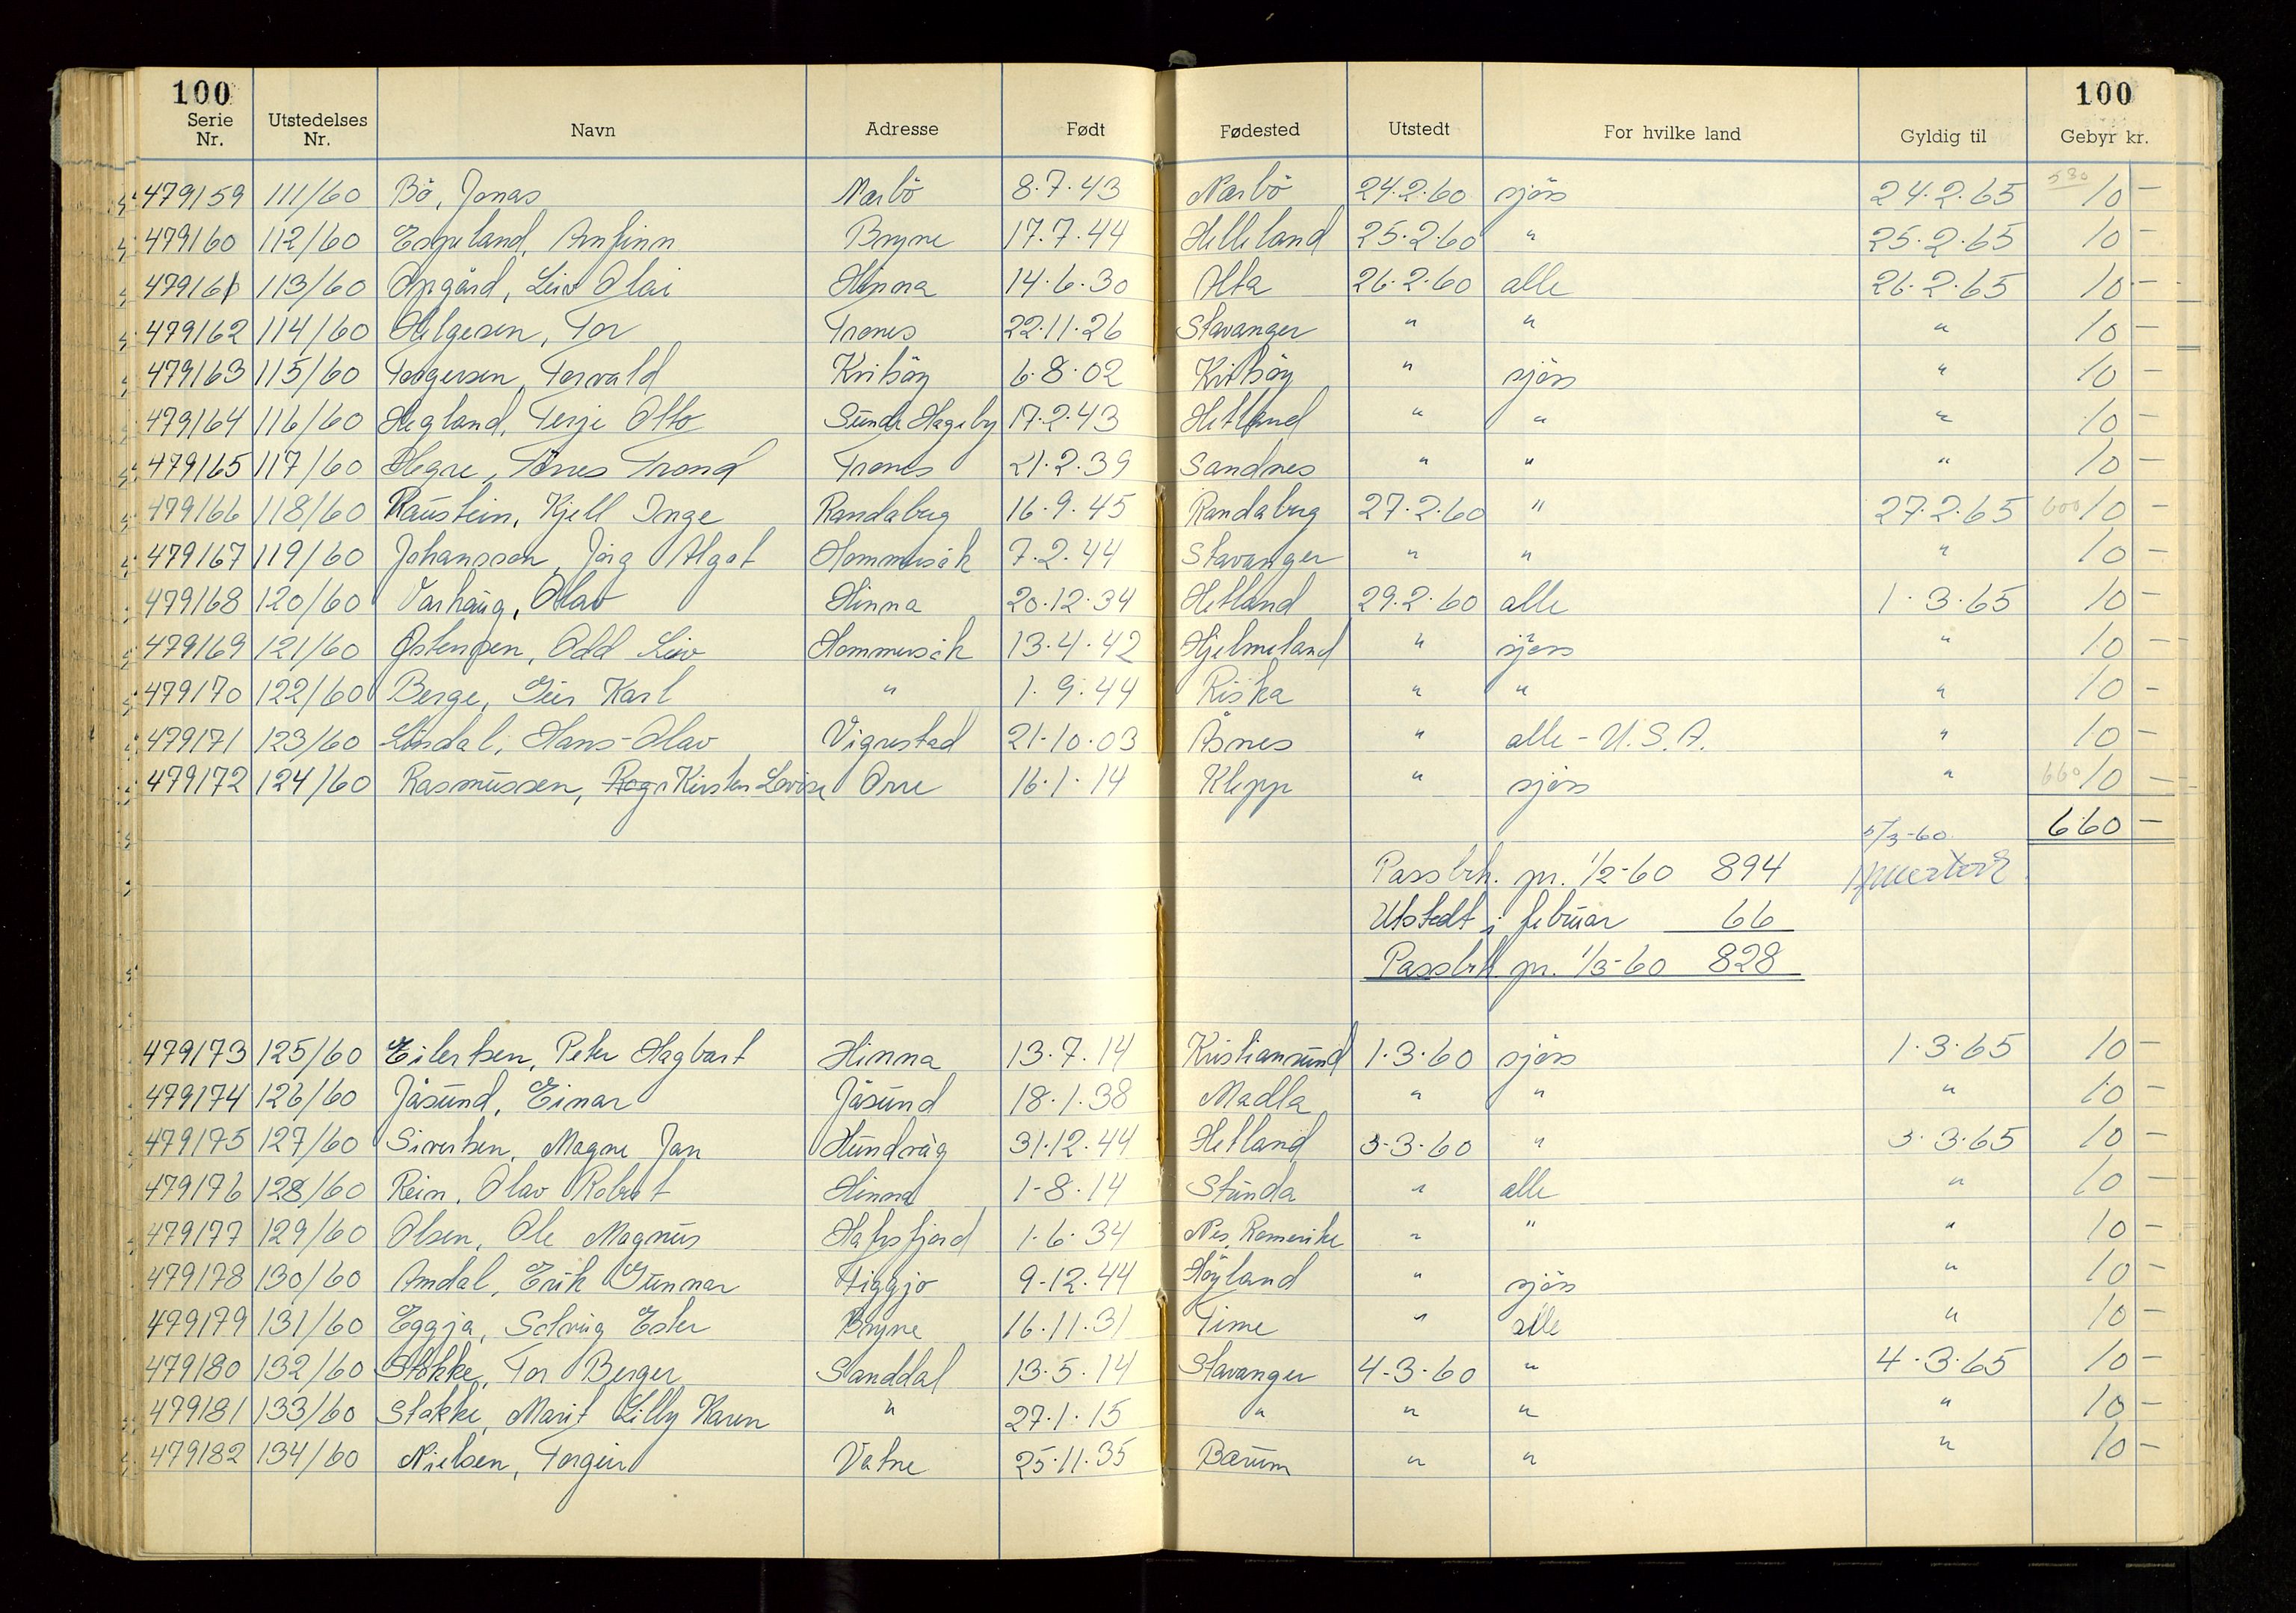 100 100
Serie Nr. Utstedelses Nr. Navn Adresse Født Fødested Utstedt For hvilke land Gyldig til Gebyr kr.
479159 111/60 Bö, Jonas Nærbö 8.7.43 Nærbö 24.2.60 sjös 24.2.65 580 10 —
479160 112/60 Espeland, Arnfinn Bryne 17.7.44 Helleland 25.2.60 " 25.2.65 10 —
479161 113/60 Opgård, Leiv Olai Hinna 14.6.30 Alta 26.2.60 alle 26.2.65 10 —
479162 114/60 Helgesen, Tor Trones 22.11.26 Stavanger " " " 10 —
479163 115/60 Torgersen, Torvald Kvitsöy 6.8.02 Kvitsöy " sjös " 10 —
479164 116/60 Hegland, Terje Otto Sunde Hageby 17.2.43 Hetland " " " 10 —
479165 117/60 Hegre, Tönes Trond Trones 21.2.39 Sandnes " " " 10 —
479166 118/60 Haustein, Kjell Inge Randaberg 16.9.45 Randaberg 27.2.60 " 27.2.65 600 10 —
479167 119/60 Johansson, Jörg Algot Hommersåk 7.2.44 Stavanger " " " 10 —
479168 120/60 Varhaug, Olav Hinna 20.12.34 Hetland 29.2.60 alle 1.3.65 10 —
479169 121/60 Østenpen, Odd Leiv Hommersåk 13.4.42 Hjelmeland " sjøss " 10 —
479170 122/60 Berge, Geir Karl " 1.9.44 Riska " " " 10 —
479171 123/60 Löndal, Hans-Olav Vigrestad 21-10-03 Åsnes " alle - U.S.A. " 10 —
479172 124/60 Rasmussen, Rag Kirsten Lovise Orre 16.1.14 Klepp " sjös " 660 10 —
5/3-60 660 —
Passbeh. pr. 1/2-60 894
Utstedt i februar 66
Passbeh. pr. 1/3-60 828
479173 125/60 Eilertsen, Peter Hagbart Hinna 13.7.14 Kristiansund 1.3.60 sjös 1.3.65 10 —
479174 126/60 Jåsund, Einar Jåsund 18.1.38 Madla " " " 10 —
479175 127/60 Sivertsen, Magne Jan Hundvåg 31.12.44 Hetland 3-3-60 " 3.3.65 10 —
479176 128/60 Rein, Olav Robert Hinna 1-8.14 Stunda " alle " 10 —
479177 129/60 Olsen, Ole Magnus Hafrsfjord 1.6.34 Nes, Romerike " " " 10 —
479178 130/60 Amdal, Erik Gunnar Figgjo 9-12.44 Höyland " sjös " 10 —
479179 131/60 Eggja, Solveig Ester Bryne 16.11.31 Time " alle " 10 —
479180 132/60 Stokke, Tor Berger Sanddal 13.5.14 Stavanger 4-3-60 " 4.3.65 10 —
479181 133/60 Stokke, Marit Lilly Karen " 27.1.15 " " " " 10 —
479182 134/60 Nielsen, Torgeir Vatne 25.11.35 Bærum " " " 10 —